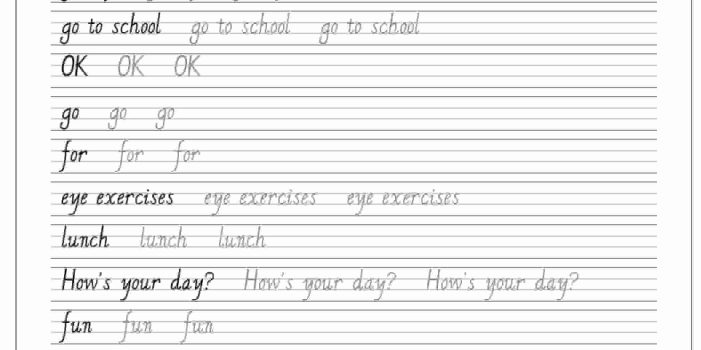 go to school go to school go to school
OK OK OK
go go go
for for for
eye exercises eye exercises eye exercises
lunch lunch lunch
How's your day? How's your day? How's your day?
fun fun fun